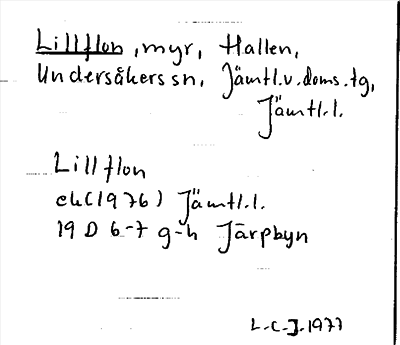 Lillflon, myr, Hallen,
Undersåkers sn, Jämtl.v.doms.tg,
Jämtl.l.
Lillflon
ek(1976) Jämtl.l.
19 D 6-7 g-h Järpbyn
L.C.J.1977